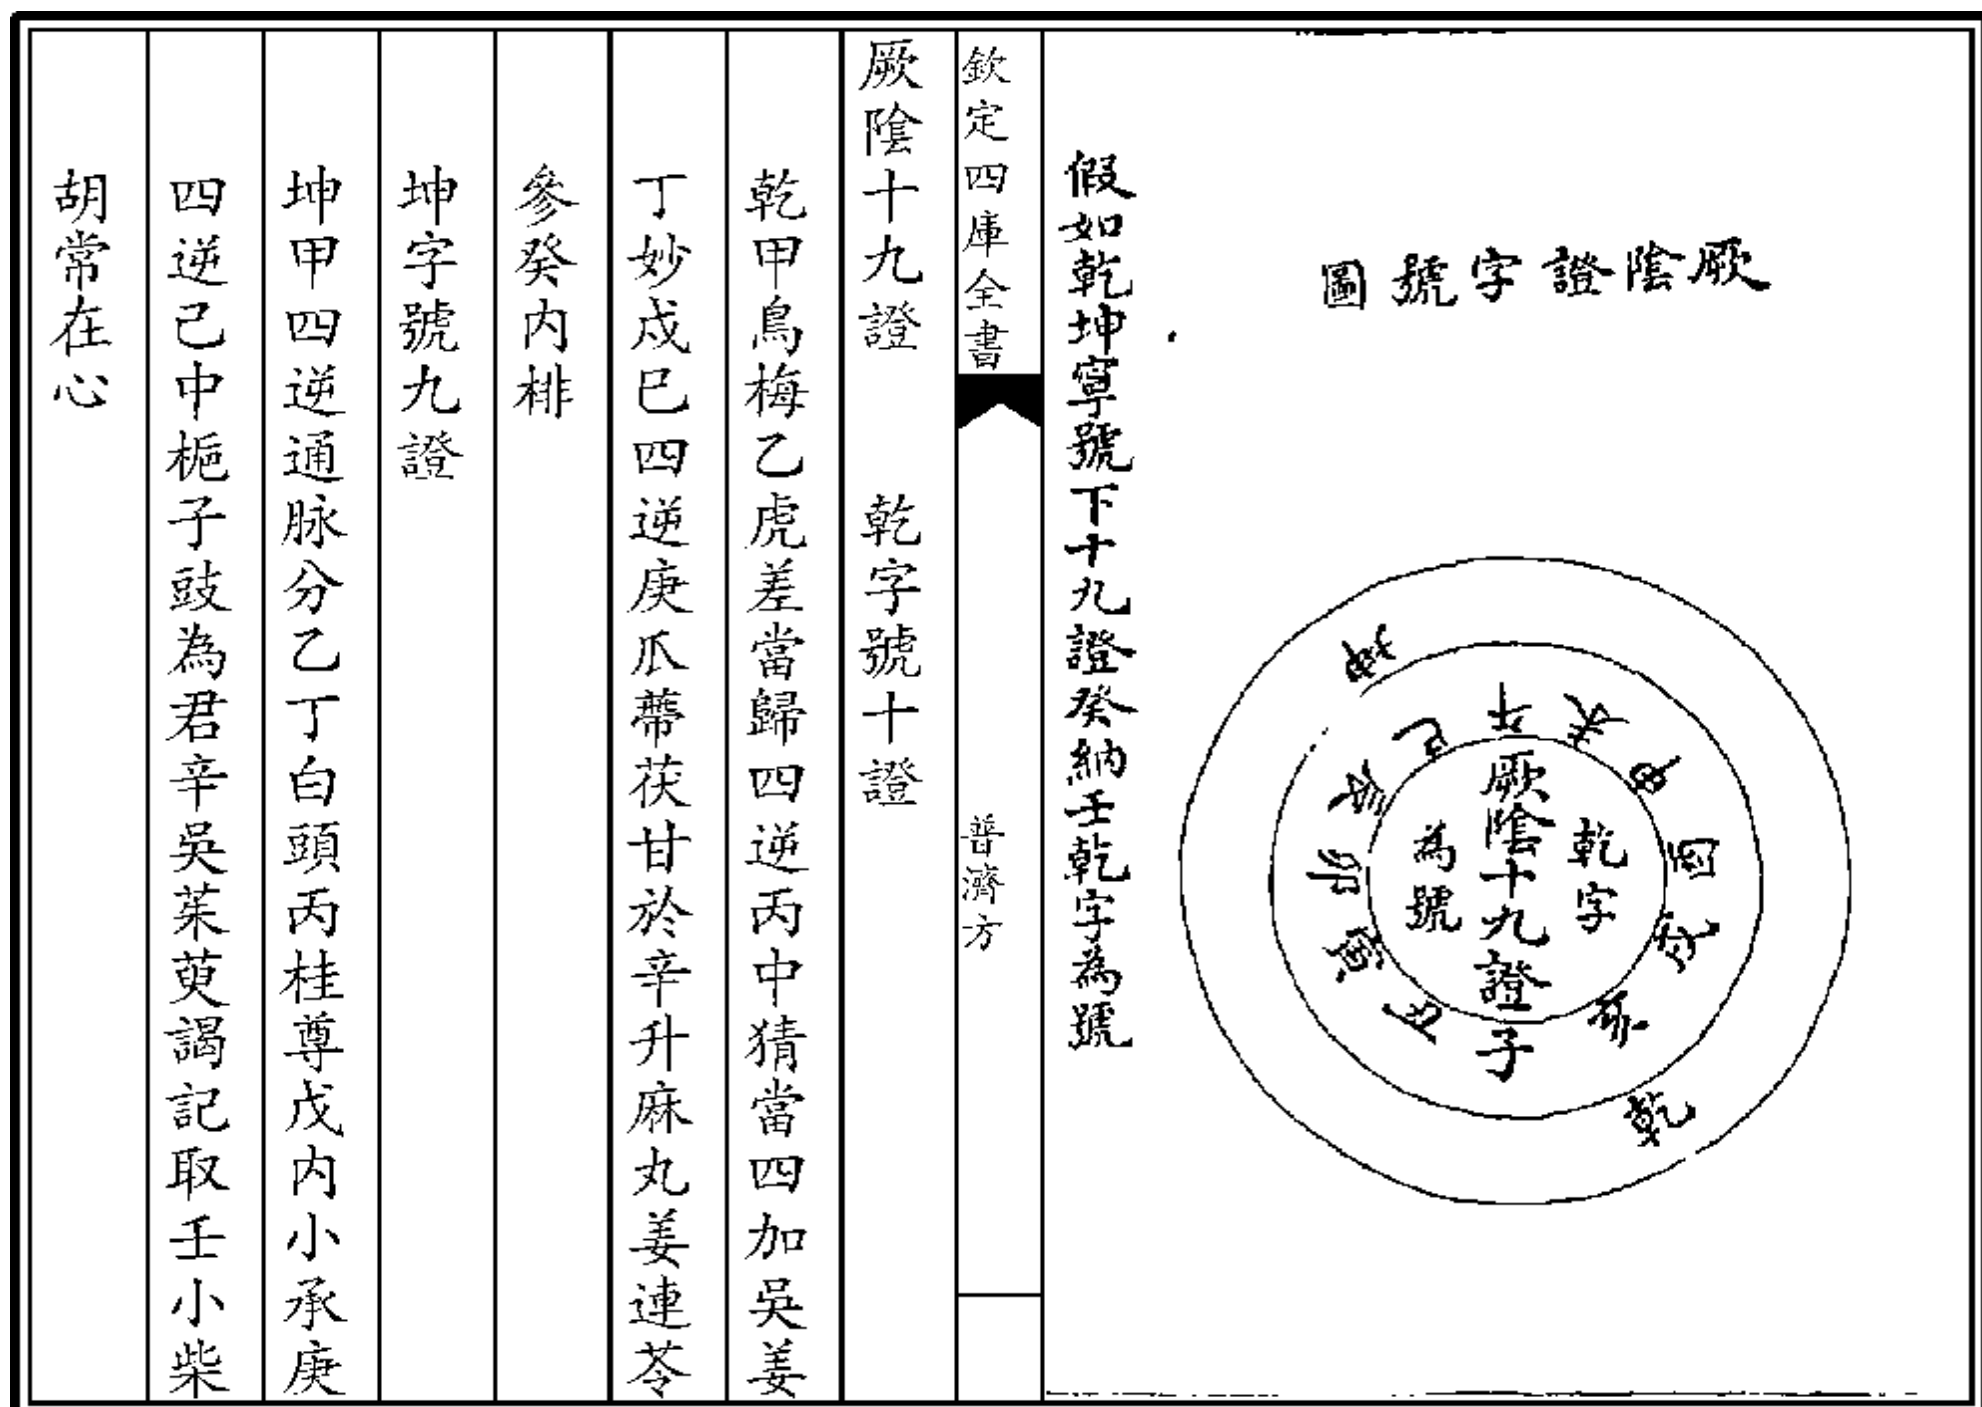 厥陰證字號圖
乾
坤
午
未
申
酉
戌
亥
丑
寅
卯
辰
巳
乾字
厥陰十九證子
為號
假如乾坤寘號下十九證癸納壬乾字為號
欽定四庫全書
普濟方
厥陰十九證 乾字號十證
乾甲烏梅乙虎差當歸四逆丙中猜當四加吳姜
丁妙戍巳四逆庚瓜蔕茯甘於辛升麻丸姜連苓
參癸内棑
坤字號九證
坤甲四逆通脉分乙丁白頭丙桂尊戊内小承庚
四逆己中梔子豉為君辛吳茱萸謁記取壬小柴
胡常在心